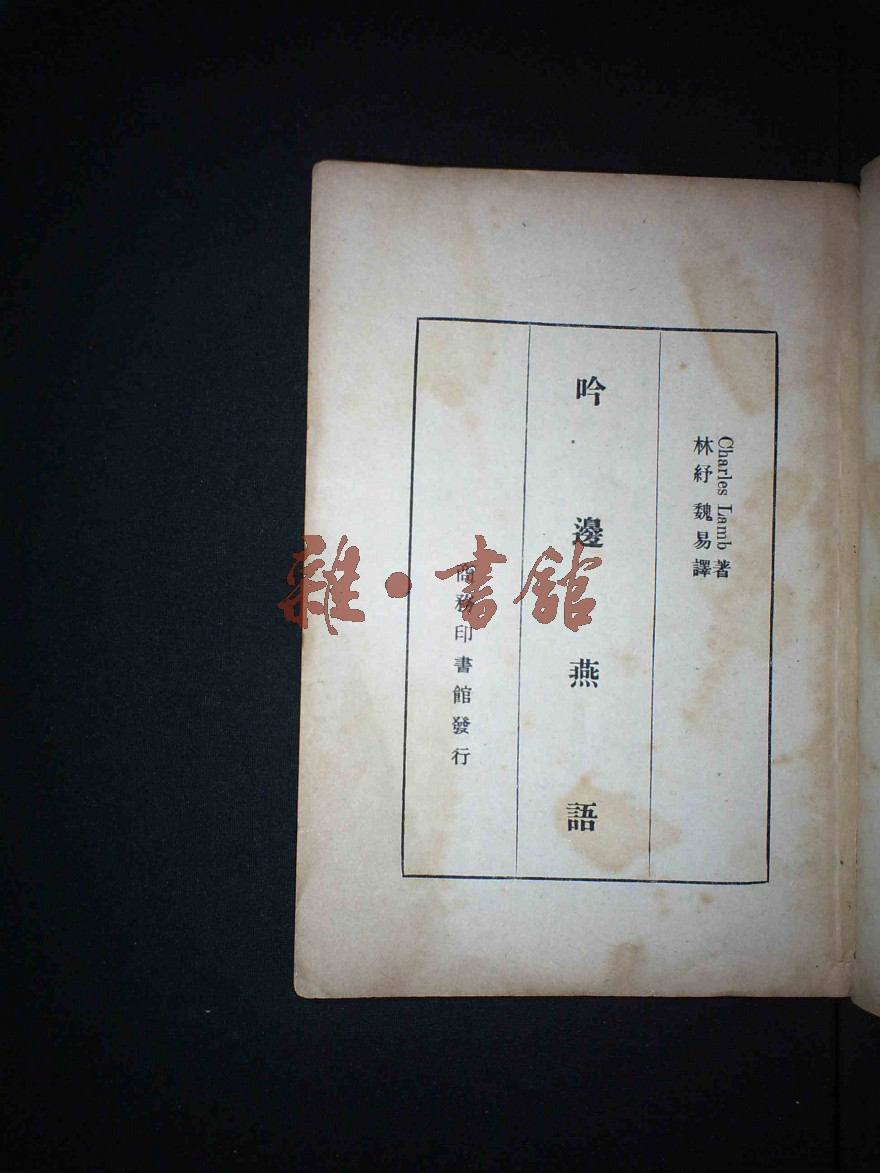 Charles Lamb 著
林紓 魏易 譯
吟邊燕語
商務印書館發行
雜·書館